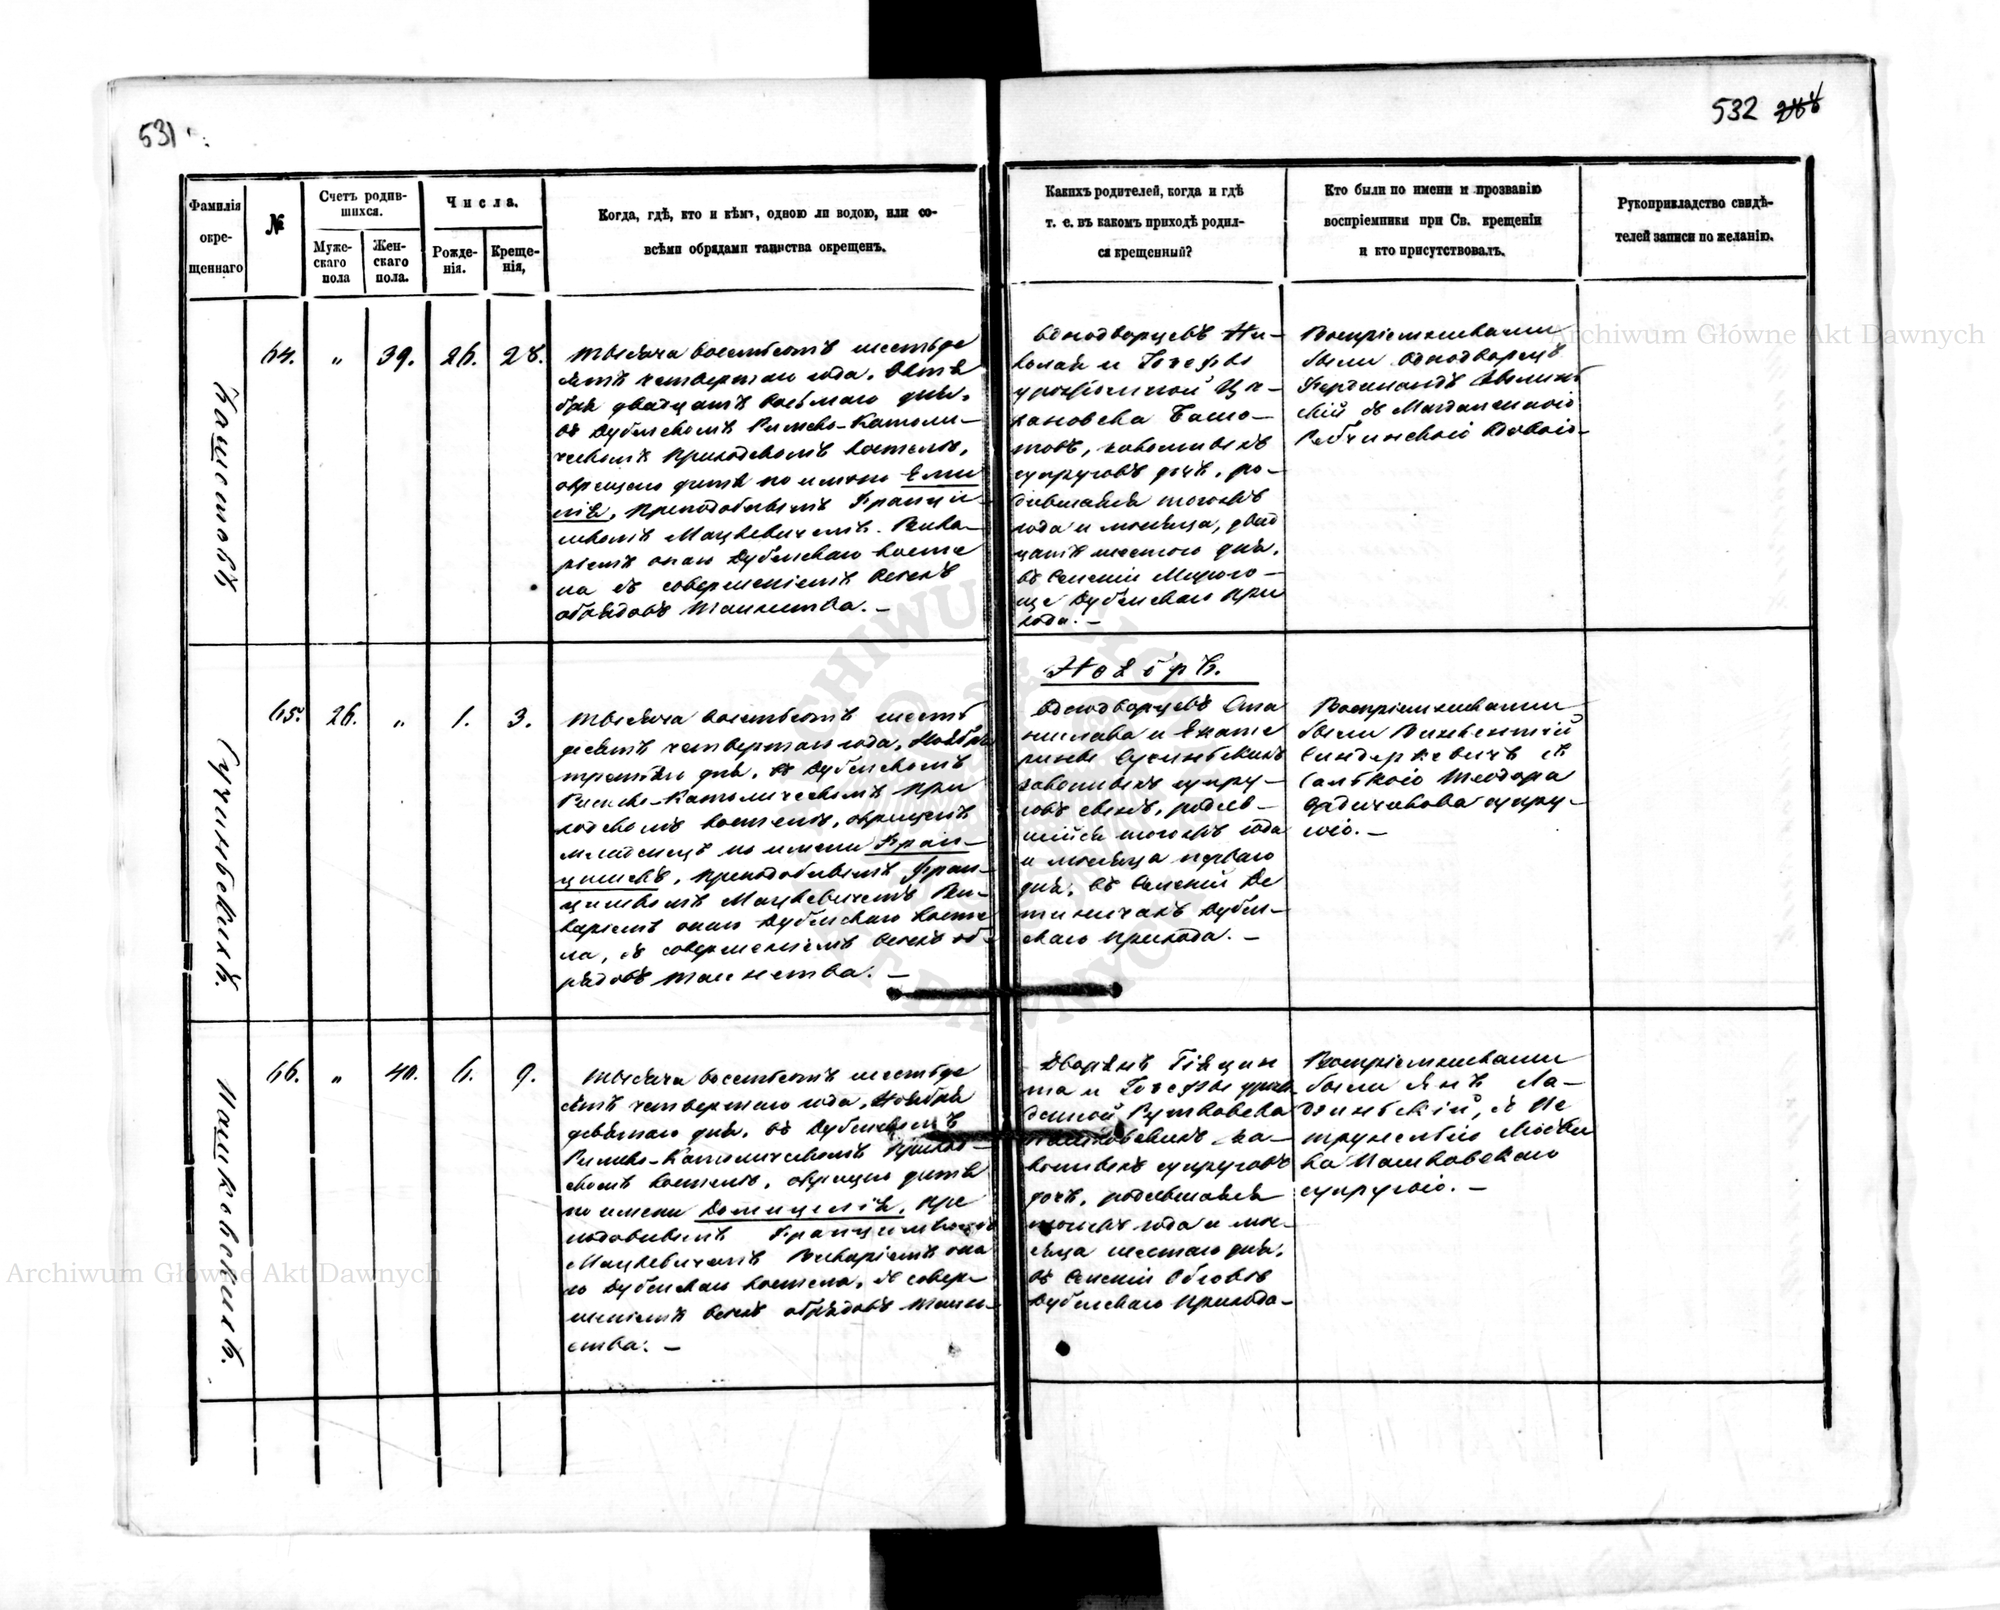 531
532
Фамилія окре-щеннаго
№
Счетъ родив-шихся.
Муже-скаго пола
Жен-скаго пола.
Числа.
Рожде-нія.
Креще-нія,
Когда, гдѣ, кто и кѣмъ, одною ли водою, или со-
всѣми обрядами таинства окрещенъ.
Какихъ родителей, когда и гдѣ
т. е. въ какомъ приходѣ родил-
ся крещенный?
Кто были по имени и прозванію
воспріемники при Св. крещеніи
и кто присутствовалъ.
Рукоприкладство свидѣ-
телей записи по желанію.
64.
"
39.
26.
28.
Тысяча восемьсотъ шестьде
сятъ четвертаго года, Октя
бря двадцать восьмаго дня,
въ Дубенскомъ Римско-Католи-
ческомъ приходскомъ костелѣ,
окрещено дитя по имени Еми
лія, преподобнымъ Францы-
шкомъ Мацкевичемъ Вика-
ріемъ онаго Дубенскаго косте
ла съ совершеніемъ всехъ
обрядовъ таинства. –
Однодворцевъ Ни-
колая и Іозефы
урожденной
законныхъ
супруговъ дочь, ро-
дившаяся тогожъ
года и мѣсяца, двад
цать шестого дня,
въ селеніи Мирого-
ще Дубенскаго при
хода. –
Воспріемниками
были Однодворецъ
Фердинандъ
съ Магдаленою
65.
26.
"
1.
3.
Сучинскихъ.
Тысяча восемьсотъ шесть
десятъ четвертаго года, Ноября
третяго дня, въ Дубенскомъ
Римско-Католическомъ при
ходскомъ костелѣ, окрещенъ
младенецъ по имени Фран-
цишекъ, преподобнымъ Фран-
цишкомъ Мацкевичемъ Ви-
каріемъ онаго Дубенскаго косте
ла, съ совершеніемъ всехъ об-
рядовъ таинства. –
Ноябрь.
Однодворцевъ Ста
нислава и Екате
рины Сучинскихъ
законныхъ супру-
говъ сынъ, родив-
шійся тогожъ года
и мѣсяца перваго
дня, въ селеніи
Дубен-
скаго прихода. –
Воспріемниками
были Винцентій
съ
Теодора
супру-
гою. –
66.
"
40.
6.
9.
Пашковскихъ.
Тысяча восемьсотъ шестьде
сятъ четвертаго года, Ноября
девятаго дня, въ Дубенскомъ
Римско-Католическомъ приход-
скомъ костелѣ, окрещено дитя
по имени Домицелія, пре
подобнымъ Францишкомъ
Мацкевичемъ Викаріемъ она
го Дубенскаго костела, съ совер-
шеніемъ всехъ обрядовъ таин-
ства. –
Дворянъ Гіяцин
та и Іозефы урож
денной Рутковска
Пашковскихъ за-
конныхъ супруговъ
дочь, родившаяся
тогожъ года и мѣ-
сяца шестаго дня,
въ селеніи
Дубенскаго прихода-
Воспріемниками
были Янъ
съ Пе
трунелею
Пашковскаго
супругою. –
Archiwum Główne Akt Dawnych
Archiwum Główne Akt Dawnych